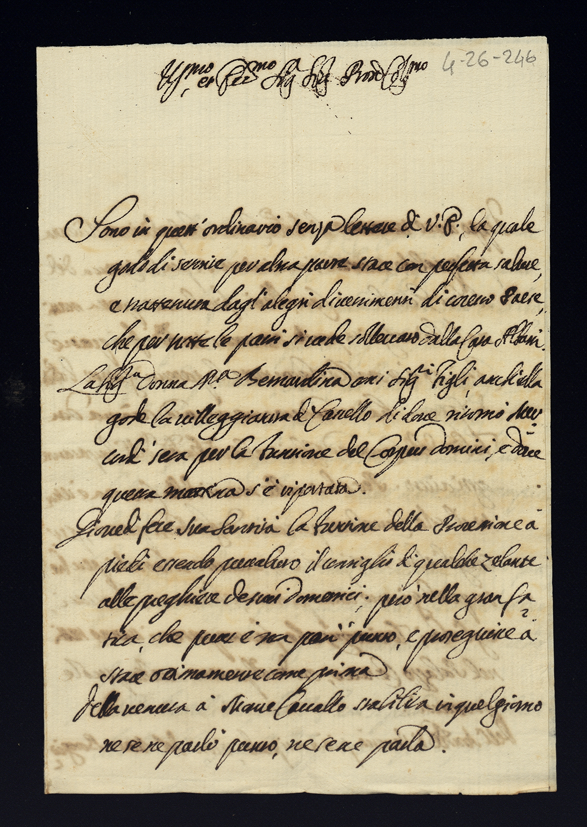 Ill.mo et Ecc.mo Sig.r Sig.r Pron Col.mo
4-26-246
Sono in quest'ordinario senza lettere di V.P., la quale
godo di sentire per altra parte stare con perfetta salute,
e trattenuta dagl'alegri divertimenti di cotesto Paese,
che per tutte le parti si vede sollevato dalla Casa Albani.
La Sig.ra Donna M.a Bernardina con Sig.ri Figli, anch'ella
gode la villeggiatura di Castello di dove ritornò Mer
cordì sera per la funzione del Corpus domini, e dove
questa mattina s'è riportata.
Giovedì fece Sua Santità la funzione della Processione à
piedi essendo prevalso il consiglio di qualche zelante
alle preghiere de suoi domestici; però nella gran fa
tica, che fece è non patì punto, e proseguire à
stare ottimamente come prima
della venuta à Monte Cavallo stabilita in quel giorno
ne se ne parlò punto, ne se ne parla.